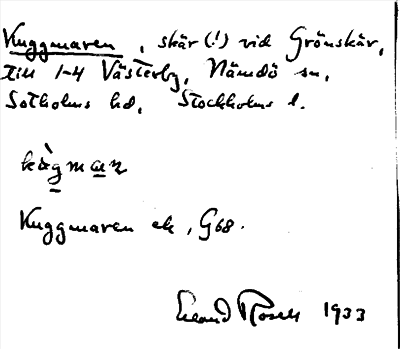 Kuggmaren, skär (!) vid Grönskär,
till 1-4 Västerby, Nämdö sn,
Sotholms hd, Stockholms l.
kùgmaṟ
Kuggmaren ek, G68.
Erland Rosell 1933